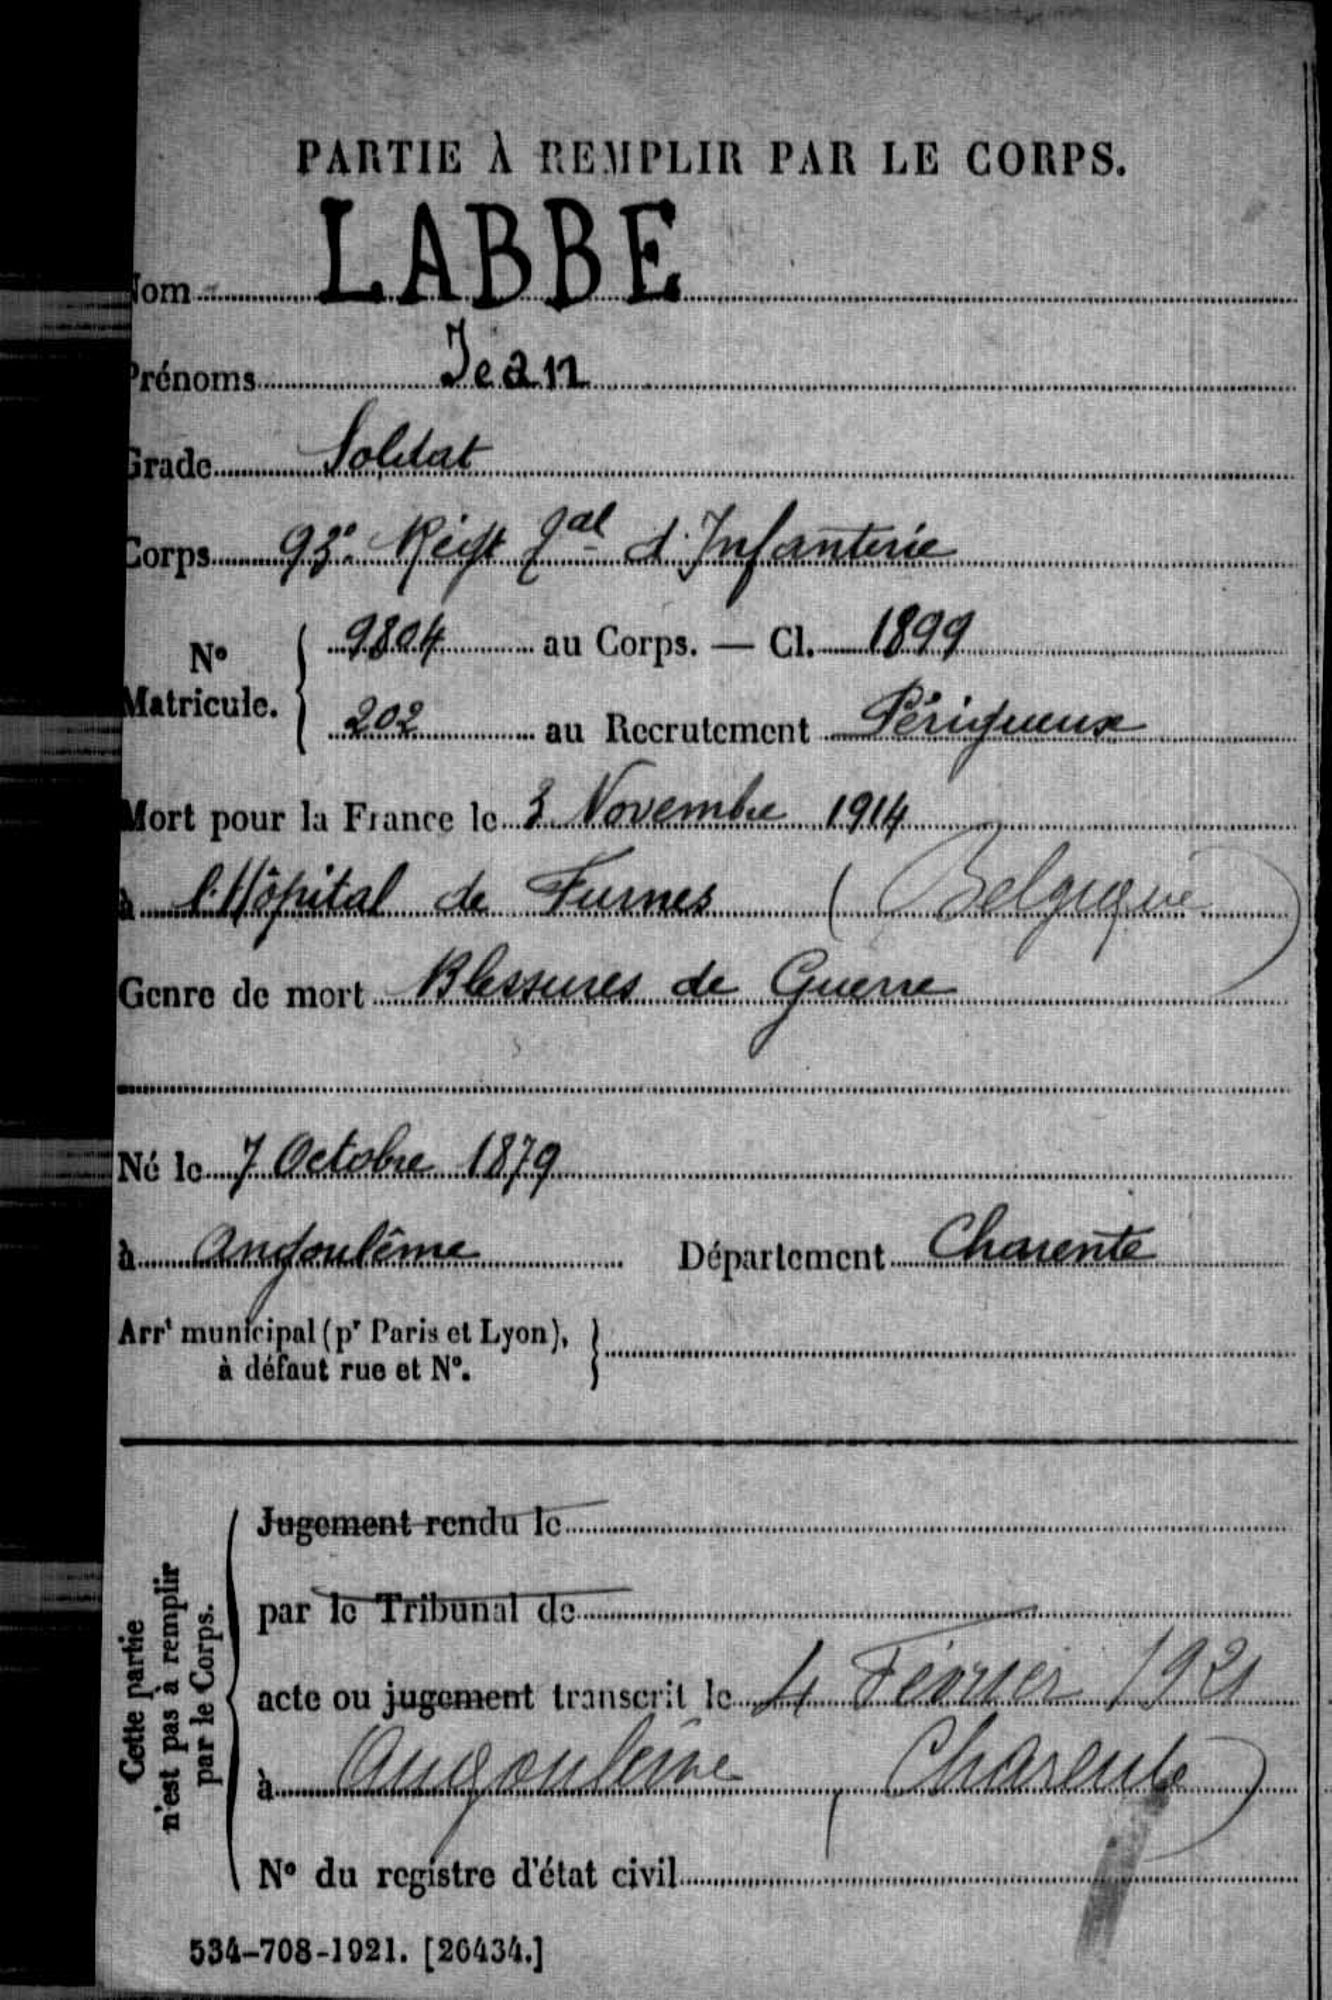 PARTIE À REMPLIR PAR LE CORPS.
Nom LABBE
Prénoms Jean
Grade Soldat
Corps 93e Régt Jal d'Infanterie
N° Matricule. 9804 au Corps. — Cl. 1899
202 au Recrutement Périgueux
Mort pour la France le 3 Novembre 1914
à l'Hôpital de Furnes (Belgique)
Genre de mort Blessures de Guerre
Né le 7 Octobre 1879
à Angoulême Département Charente
Arrt municipal (pr Paris et Lyon),
à défaut rue et N°.
Cette partie
n'est pas à remplir
par le Corps.
Jugement rendu le
par le Tribunal de
acte ou jugement transcrit le 4 Février 1921
à Angoulême (Charente)
N° du registre d'état civil
534-708-1921. [26434.]